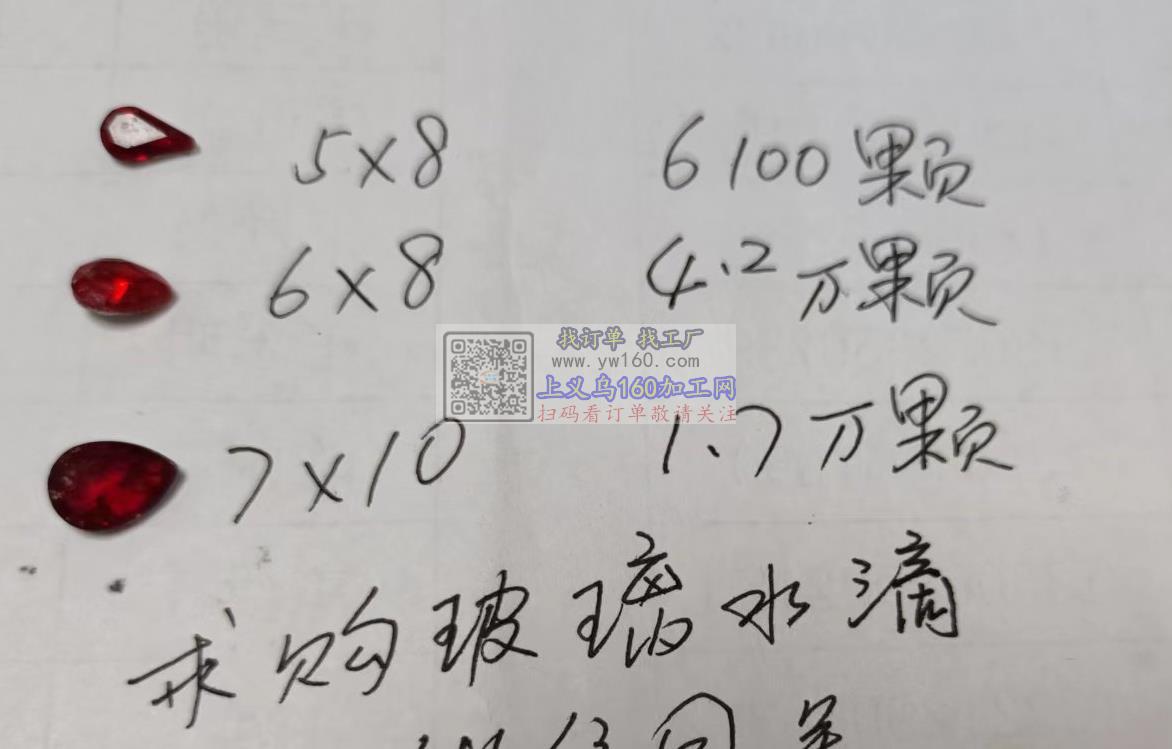 5×8 6100颗
6×8 4.2万颗
找订单 找工厂
www.yw160.com
上义乌160加工网
扫码看订单敬请关注
7×10 1.7万颗
求购玻璃水滴